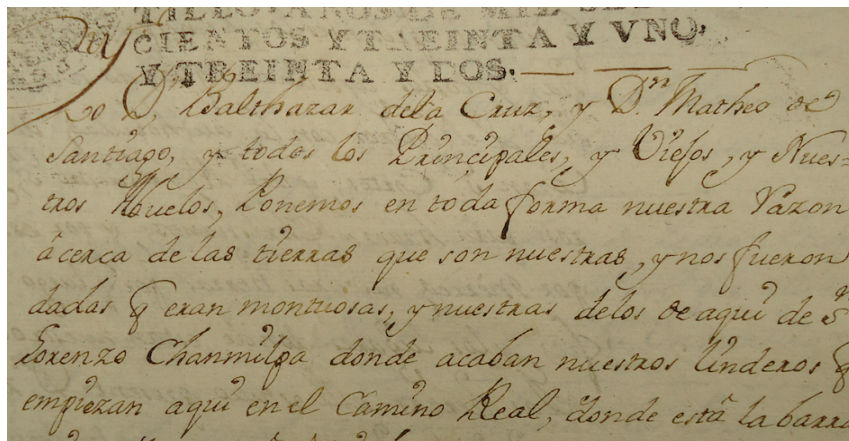 TILLO, AÑOS DE MIL SETE
CIENTOS Y TREINTA Y VNO,
Y TREINTA Y DOS.
Yo Dn. Balthazar dela Cruz, y Dn. Matheo de
Santiago, y todos los Principales, y Viejos, y Nues=
tros Abuelos, Ponemos en toda forma nuestra razon
àcerca de las tierras que son nuestras, y nos fueron
dadas q eran montuosas, y nuestras delos de aqui de Sn
Lorenzo Chanmilpa donde acaban nuestros linderos q
empiezan aqui en el Camino Real, donde està la barr